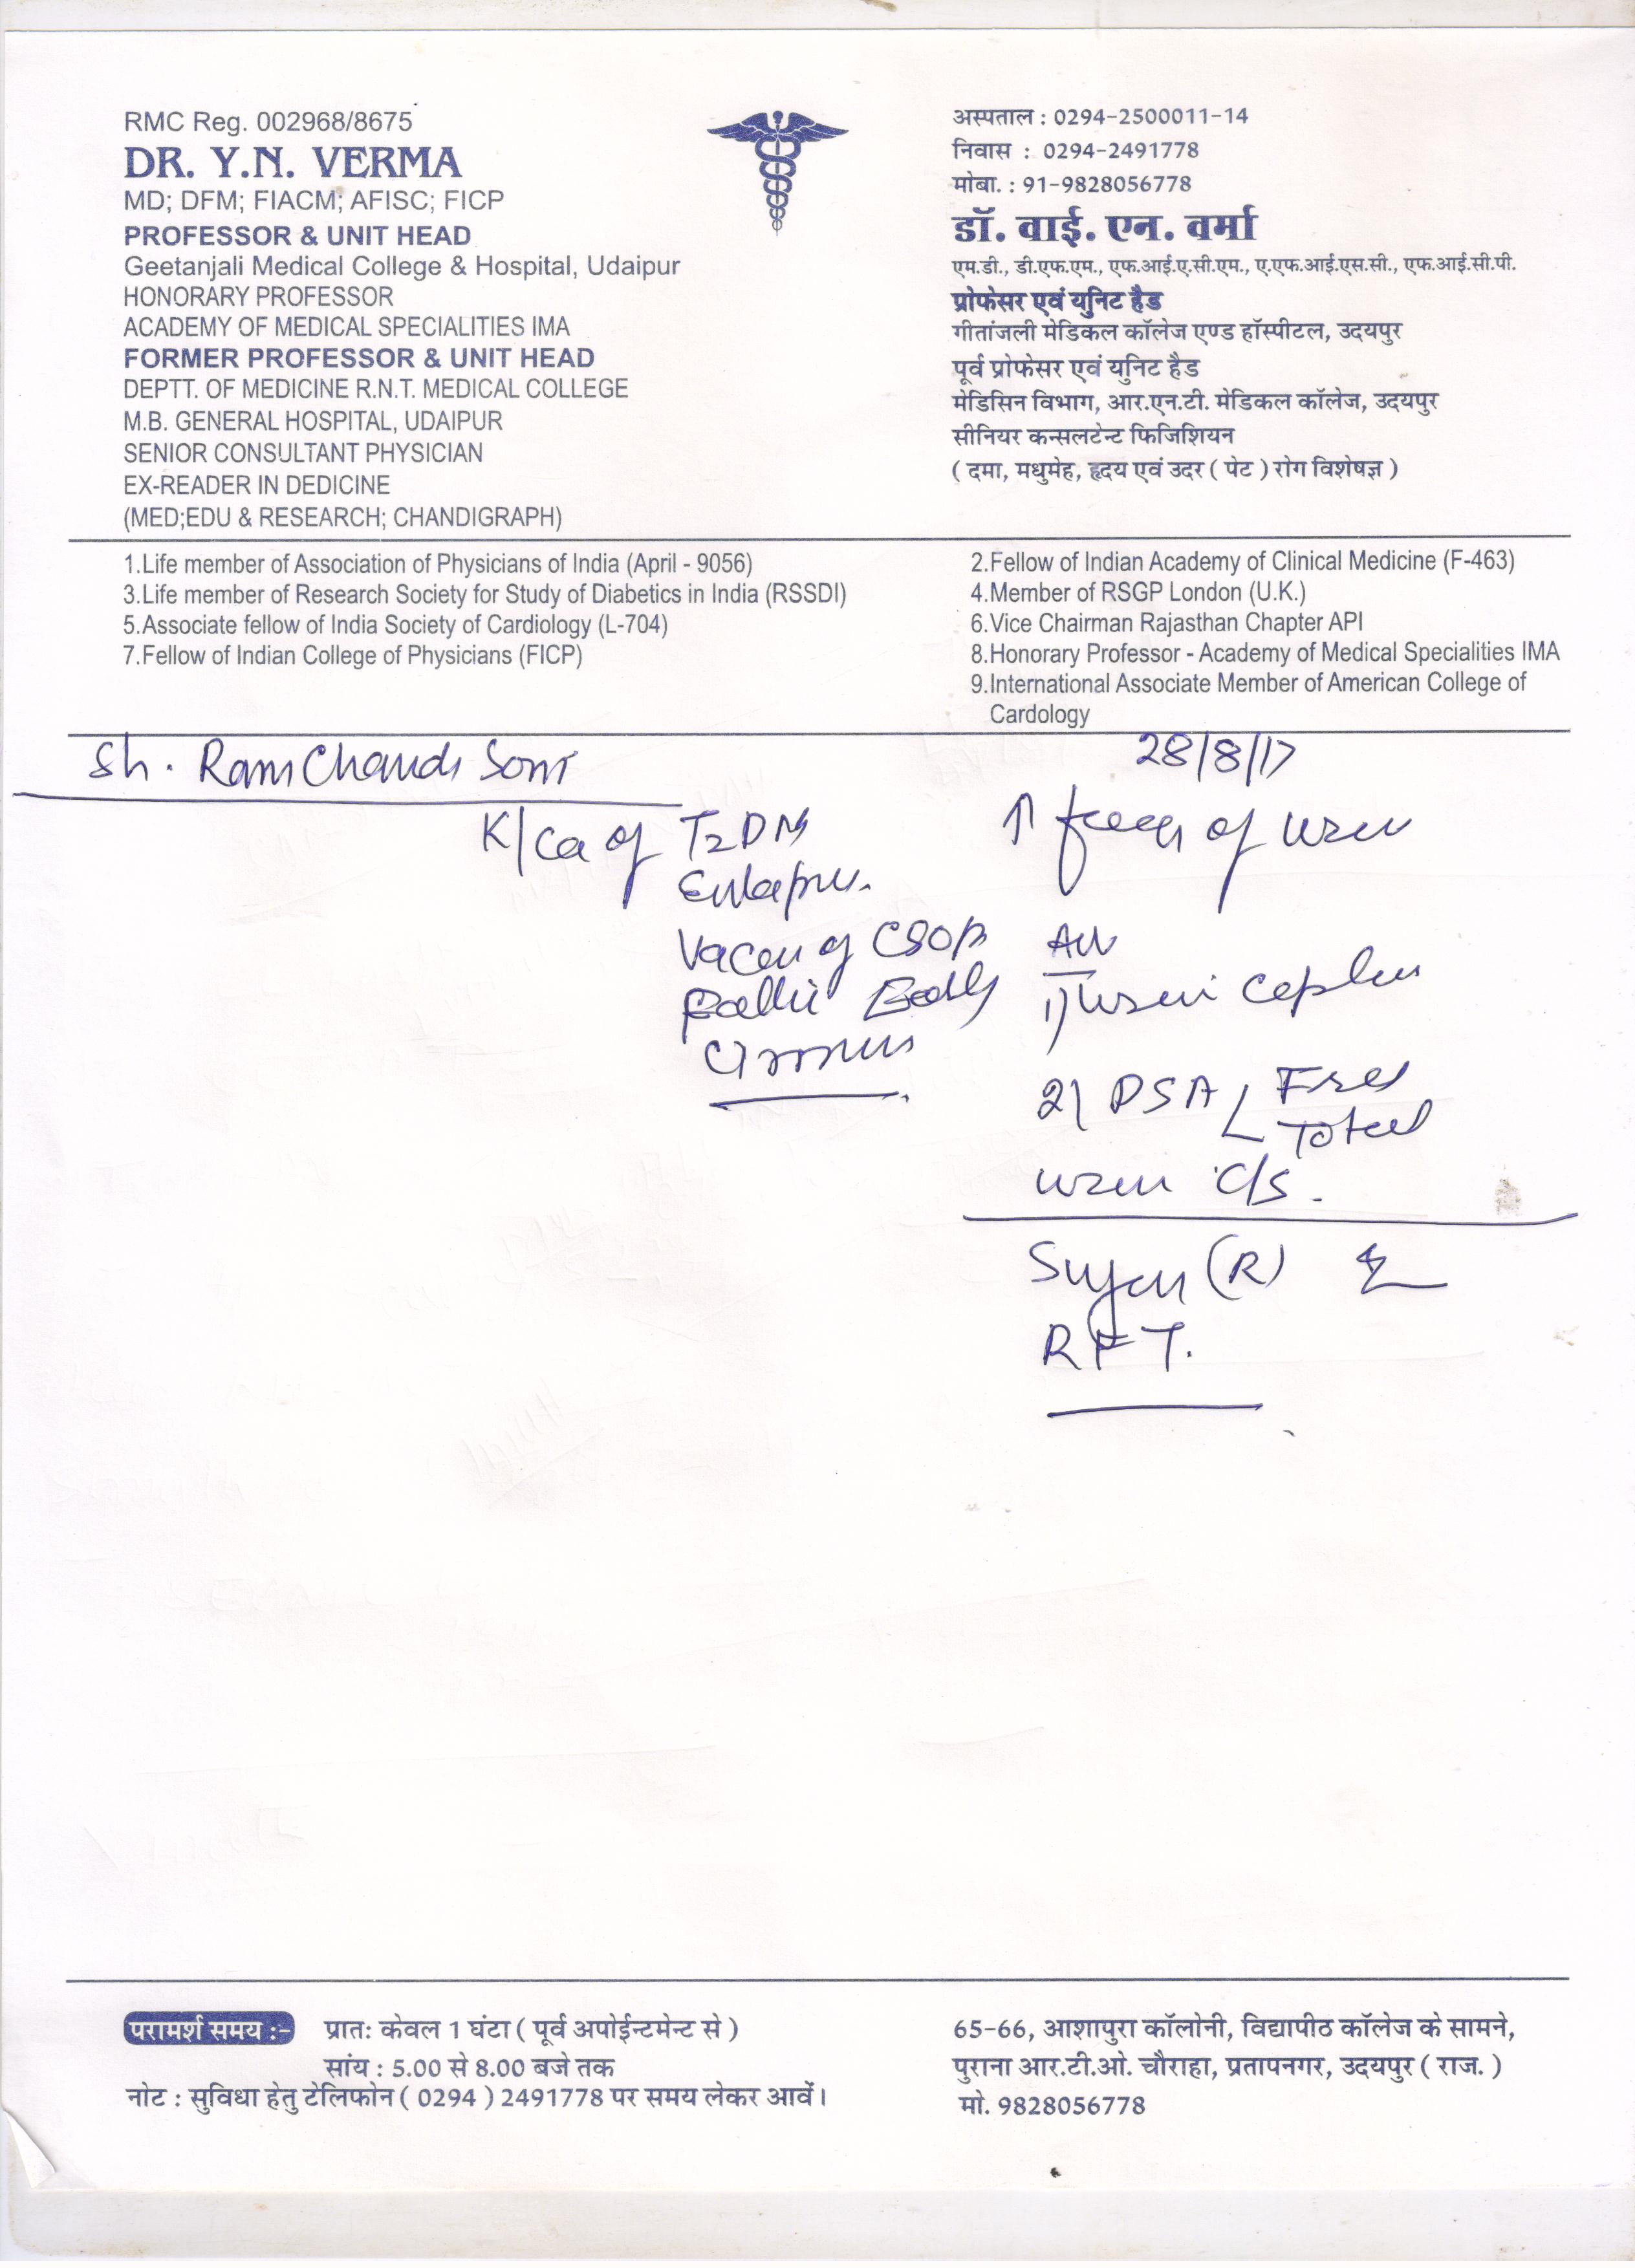 RMC Reg. 002968/8675
DR. Y.N. VERMA
MD; DFM; FIACM; AFISC; FICP
PROFESSOR & UNIT HEAD
Geetanjali Medical College & Hospital, Udaipur
HONORARY PROFESSOR
ACADEMY OF MEDICAL SPECIALITIES IMA
FORMER PROFESSOR & UNIT HEAD
DEPTT. OF MEDICINE R.N.T. MEDICAL COLLEGE
M.B. GENERAL HOSPITAL, UDAIPUR
SENIOR CONSULTANT PHYSICIAN
EX-READER IN DEDICINE
(MED;EDU & RESEARCH; CHANDIGRAPH)
अस्पताल : 0294-2500011-14
निवास : 0294-2491778
मोबा. : 91-9828056778
डॉ. वाई. एन. वर्मा
एम.डी., डी.एफ.एम., एफ.आई.ए.सी.एम., ए.एफ.आई.एस.सी., एफ.आई.सी.पी.
प्रोफेसर एवं युनिट हैड
गीतांजली मेडिकल कॉलेज एण्ड हॉस्पीटल, उदयपुर
पूर्व प्रोफेसर एवं युनिट हैड
मेडिसिन विभाग, आर.एन.टी. मेडिकल कॉलेज, उदयपुर
सीनियर कन्सलटेन्ट फिजिशियन
( दमा, मधुमेह, हृदय एवं उदर ( पेट ) रोग विशेषज्ञ )
1.Life member of Association of Physicians of India (April - 9056)
2.Fellow of Indian Academy of Clinical Medicine (F-463)
3.Life member of Research Society for Study of Diabetics in India (RSSDI)
4.Member of RSGP London (U.K.)
5.Associate fellow of India Society of Cardiology (L-704)
6.Vice Chairman Rajasthan Chapter API
7.Fellow of Indian College of Physicians (FICP)
8.Honorary Professor - Academy of Medical Specialities IMA
9.International Associate Member of American College of
Cardology
Sh. RamChand Soni
28/8/17
K/Ca of T2DM
of
of
1)
2) PSA Free
Total
C/S.
(R)
RFT.
परामर्श समय :- प्रातः केवल 1 घंटा ( पूर्व अपोईन्टमेन्ट से )
सांय : 5.00 से 8.00 बजे तक
नोट : सुविधा हेतु टेलिफोन ( 0294 ) 2491778 पर समय लेकर आवें।
65-66, आशापुरा कॉलोनी, विद्यापीठ कॉलेज के सामने,
पुराना आर.टी.ओ. चौराहा, प्रतापनगर, उदयपुर ( राज. )
मो. 9828056778